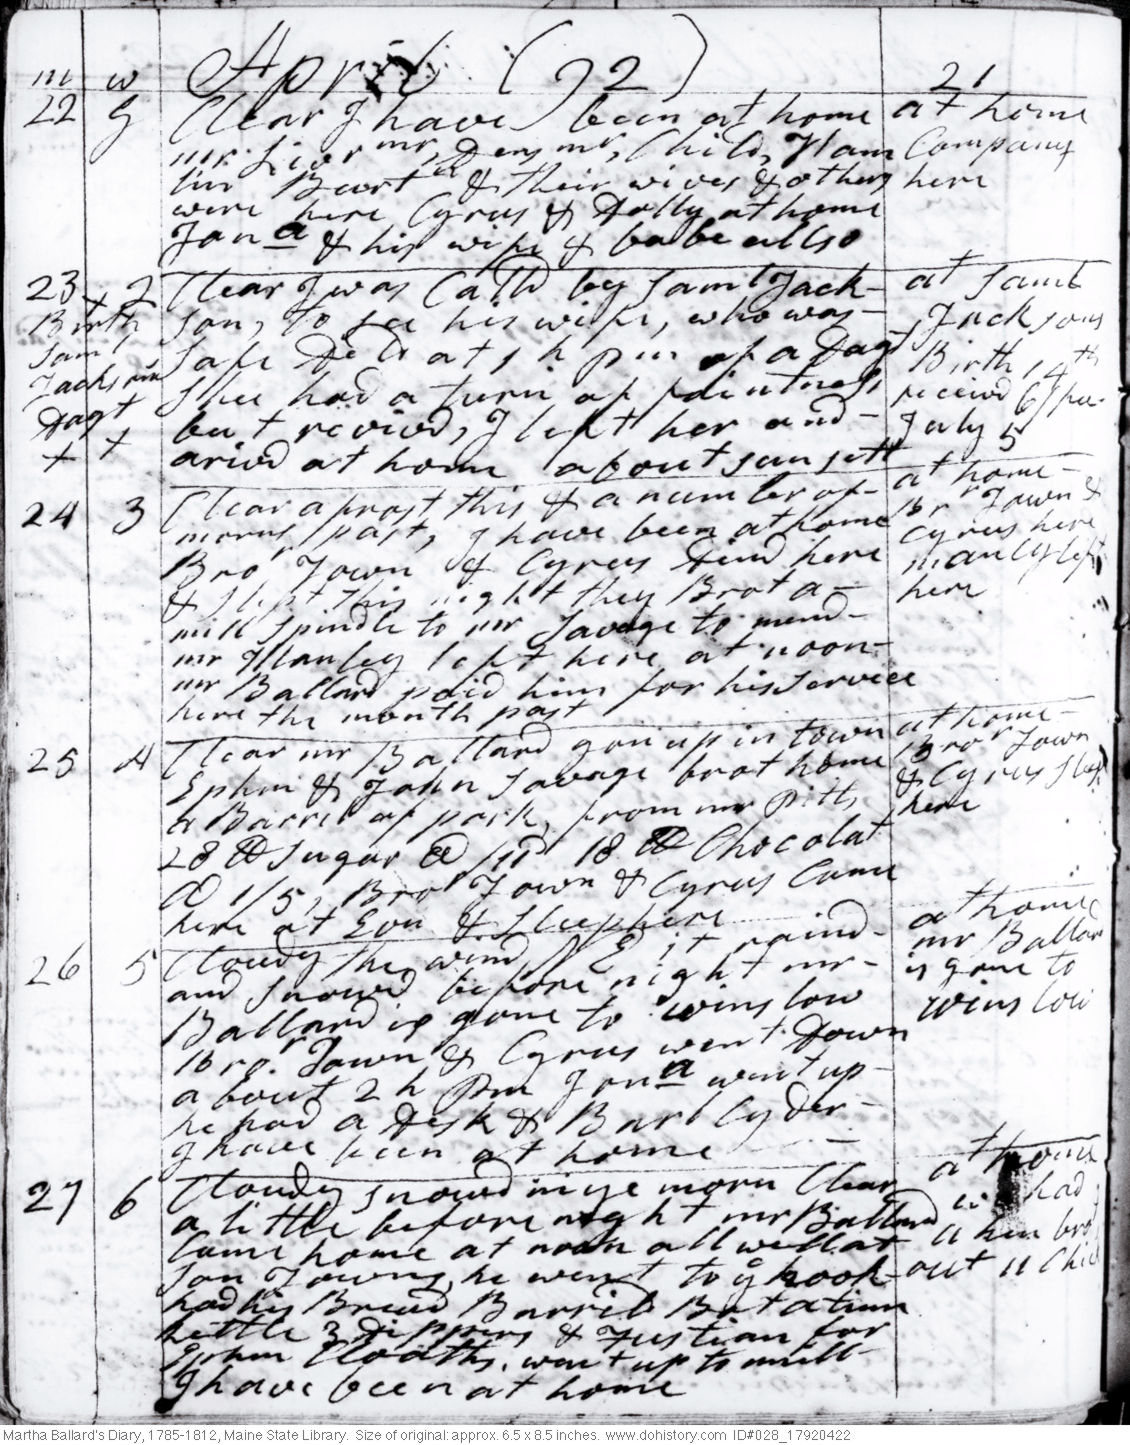 m w April (92) 21
22 g Clear I have been at home at home
mr Livermr, Densmr, Child, Ham Company
lin Burt & their wives & others here
were here Cyrus & Dolly at home
Jona & his wife & babe allso
23 2 Clear I was Calld by Saml Jack- at Saml
Birth son, to see his wife, who was Jacksons
Saml safe Deld at 5 h pm of a Dagt Birth 14th
Jacksons Shee had a turn of faintness receivd 6/ pr.
Dagt but revivd, I left her and July 5
x x arivd at home about sun sett
24 3 Clear a frost this & a number of at home
morns past, I have been at home Bror Town &
Bror Town & Cyrus dind here Cyrus here
& slept this night they Brot a manly left
mill spindle to mr Savage to mend here
mr Manley left here at noon
mr Ballard paid him for his service
here the month past
25 4 Clear mr Ballard gon up in town at home
Ephm & John Savage brot home Bror Town
a Barrel of pork, from mr Pitts & Cyrus slep
28 lb Sugar @ /11 18 lb Chocolat here
@ 1/5, Bror Town & Cyrus Came
here at Evn & Sleep here
26 5 Cloudy the wind N E it raind at home
and snowd before night mr mr Ballard
Ballard is gone to winslow is gone to
Bror. Town & Cyrus went Down winslow
about 2 h pm Jona went up
he had a desk & Barl Cyder
I have been at home
27 6 Cloudy snowd in ye morn Clear at home
a little before night mr Ballard had
Came home at noon all well at a hen bro
son Towns, he went to ye hook out 11 Chic
had his Bread Barrils Brot a tinn
kettle 3 dippers & Fustian for
Ephm Cloaths. went up to mill
I have been at home
Martha Ballard's Diary, 1785-1812, Maine State Library. Size of original: approx. 6.5 x 8.5 inches. www.dohistory.com ID#028_17920422